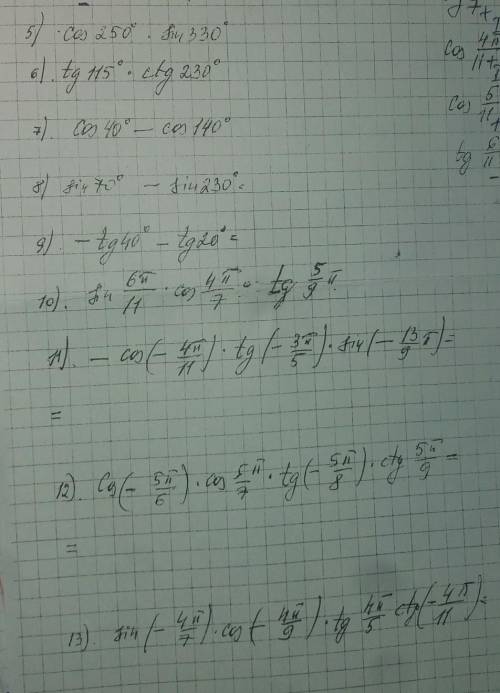 5) cos 250° · sin 330°
6). tg 115° · ctg 230°
7) cos 40° – cos 140°
8) sin 70° – sin 230° =
9). – tg 40° – tg 20° =
10). sin 6π/11 · cos 4π/7 · tg 5/9 π.
11). – cos(– 4π/11) · tg(– 3π/5) · sin(– 13/9 π) =
=
12). Cos(– 5π/6) · cos 5/7 π · tg(– 5π/8) · ctg 5π/9 =
=
13). sin(– 4π/7) · cos(– 4π/9) · tg 4π/5 ctg(– 4π/11) =
cos 4π/11
cos 5/11
tg 6/11